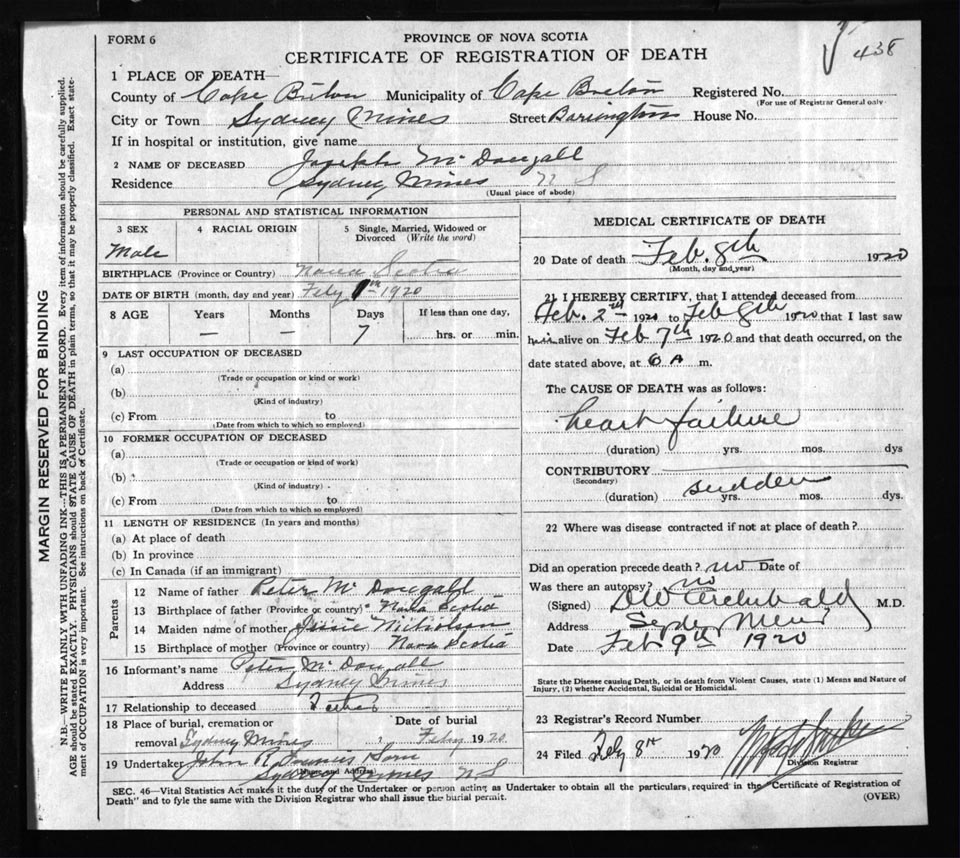 FORM 6
PROVINCE OF NOVA SCOTIA
438
CERTIFICATE OF REGISTRATION OF DEATH
1 PLACE OF DEATH—
County of Cape Briton Municipality of Cape Breton Registered No.
(For use of Registrar General only
City or Town Sydney Mines Street Barrington House No.
If in hospital or institution, give name
2 NAME OF DECEASED Joseph McDougall
Residence Sydney Mines N S
(Usual place of abode)
PERSONAL AND STATISTICAL INFORMATION
3 SEX 4 RACIAL ORIGIN 5 Single, Married, Widowed or
Divorced (Write the word)
Male
BIRTHPLACE (Province or Country) Nova Scotia
DATE OF BIRTH (month, day and year) Feby 1 1920
8 AGE Years Months Days If less than one day,
— — 7 hrs. or min.
9 LAST OCCUPATION OF DECEASED
(a)
(Trade or occupation or kind or work)
(b)
(Kind of industry)
(c) From to
(Date from which to which so employed)
10 FORMER OCCUPATION OF DECEASED
(a)
(Trade or occupation or kind of work)
(b)
(Kind of industry)
(c) From to
(Date from which to which so employed)
11 LENGTH OF RESIDENCE (In years and months)
(a) At place of death
(b) In province
(c) In Canada (if an immigrant)
Parents
12 Name of father Peter McDougall
13 Birthplace of father (Province or country) Nova Scotia
14 Maiden name of mother Jessie Nicholson
15 Birthplace of mother (Province or country) Nova Scotia
16 Informant's name Peter McDougall
Address Sydney Mines
17 Relationship to deceased Father
18 Place of burial, cremation or Date of burial
removal Sydney Mines Feby 1920
19 Undertaker John Son
(Name and Address)
Sydney Mines N S
MEDICAL CERTIFICATE OF DEATH
20 Date of death Feb. 8th 1920
(Month, day and year)
21 I HEREBY CERTIFY, that I attended deceased from
Feb. 2nd 1920 to Feb 8th 1920 that I last saw
him alive on Feb 7th 1920 and that death occurred, on the
date stated above, at 6 A m.
The CAUSE OF DEATH was as follows:
heart failure
(duration) yrs. mos. dys
CONTRIBUTORY
(Secondary)
sudden
(duration) yrs. mos. dys.
22 Where was disease contracted if not at place of death?
Did an operation precede death? no Date of
Was there an autopsy? no
(Signed) D W Archibald M.D.
Address Sydney Mines
Date Feb 9th 1920
State the Disease causing Death, or in death from Violent Causes, state (1) Means and Nature of
Injury, (2) whether Accidental, Suicidal or Homicidal.
23 Registrar's Record Number
24 Filed Feby 8th 1920
Division Registrar
SEC. 46—Vital Statistics Act makes it the duty of the Undertaker or person acting as Undertaker to obtain all the particulars, required in the "Certificate of Registration of
Death" and to fyle the same with the Division Registrar who shall issue the burial permit.
(OVER)
MARGIN RESERVED FOR BINDING
N.B.—WRITE PLAINLY WITH UNFADING INK—THIS IS A PERMANENT RECORD. Every item of information should be carefully supplied.
AGE should be stated EXACTLY. PHYSICIANS should STATE CAUSE OF DEATH in plain terms, so that it may be properly classified. Exact state-
ment of OCCUPATION is very important. See instructions on back of Certificate.